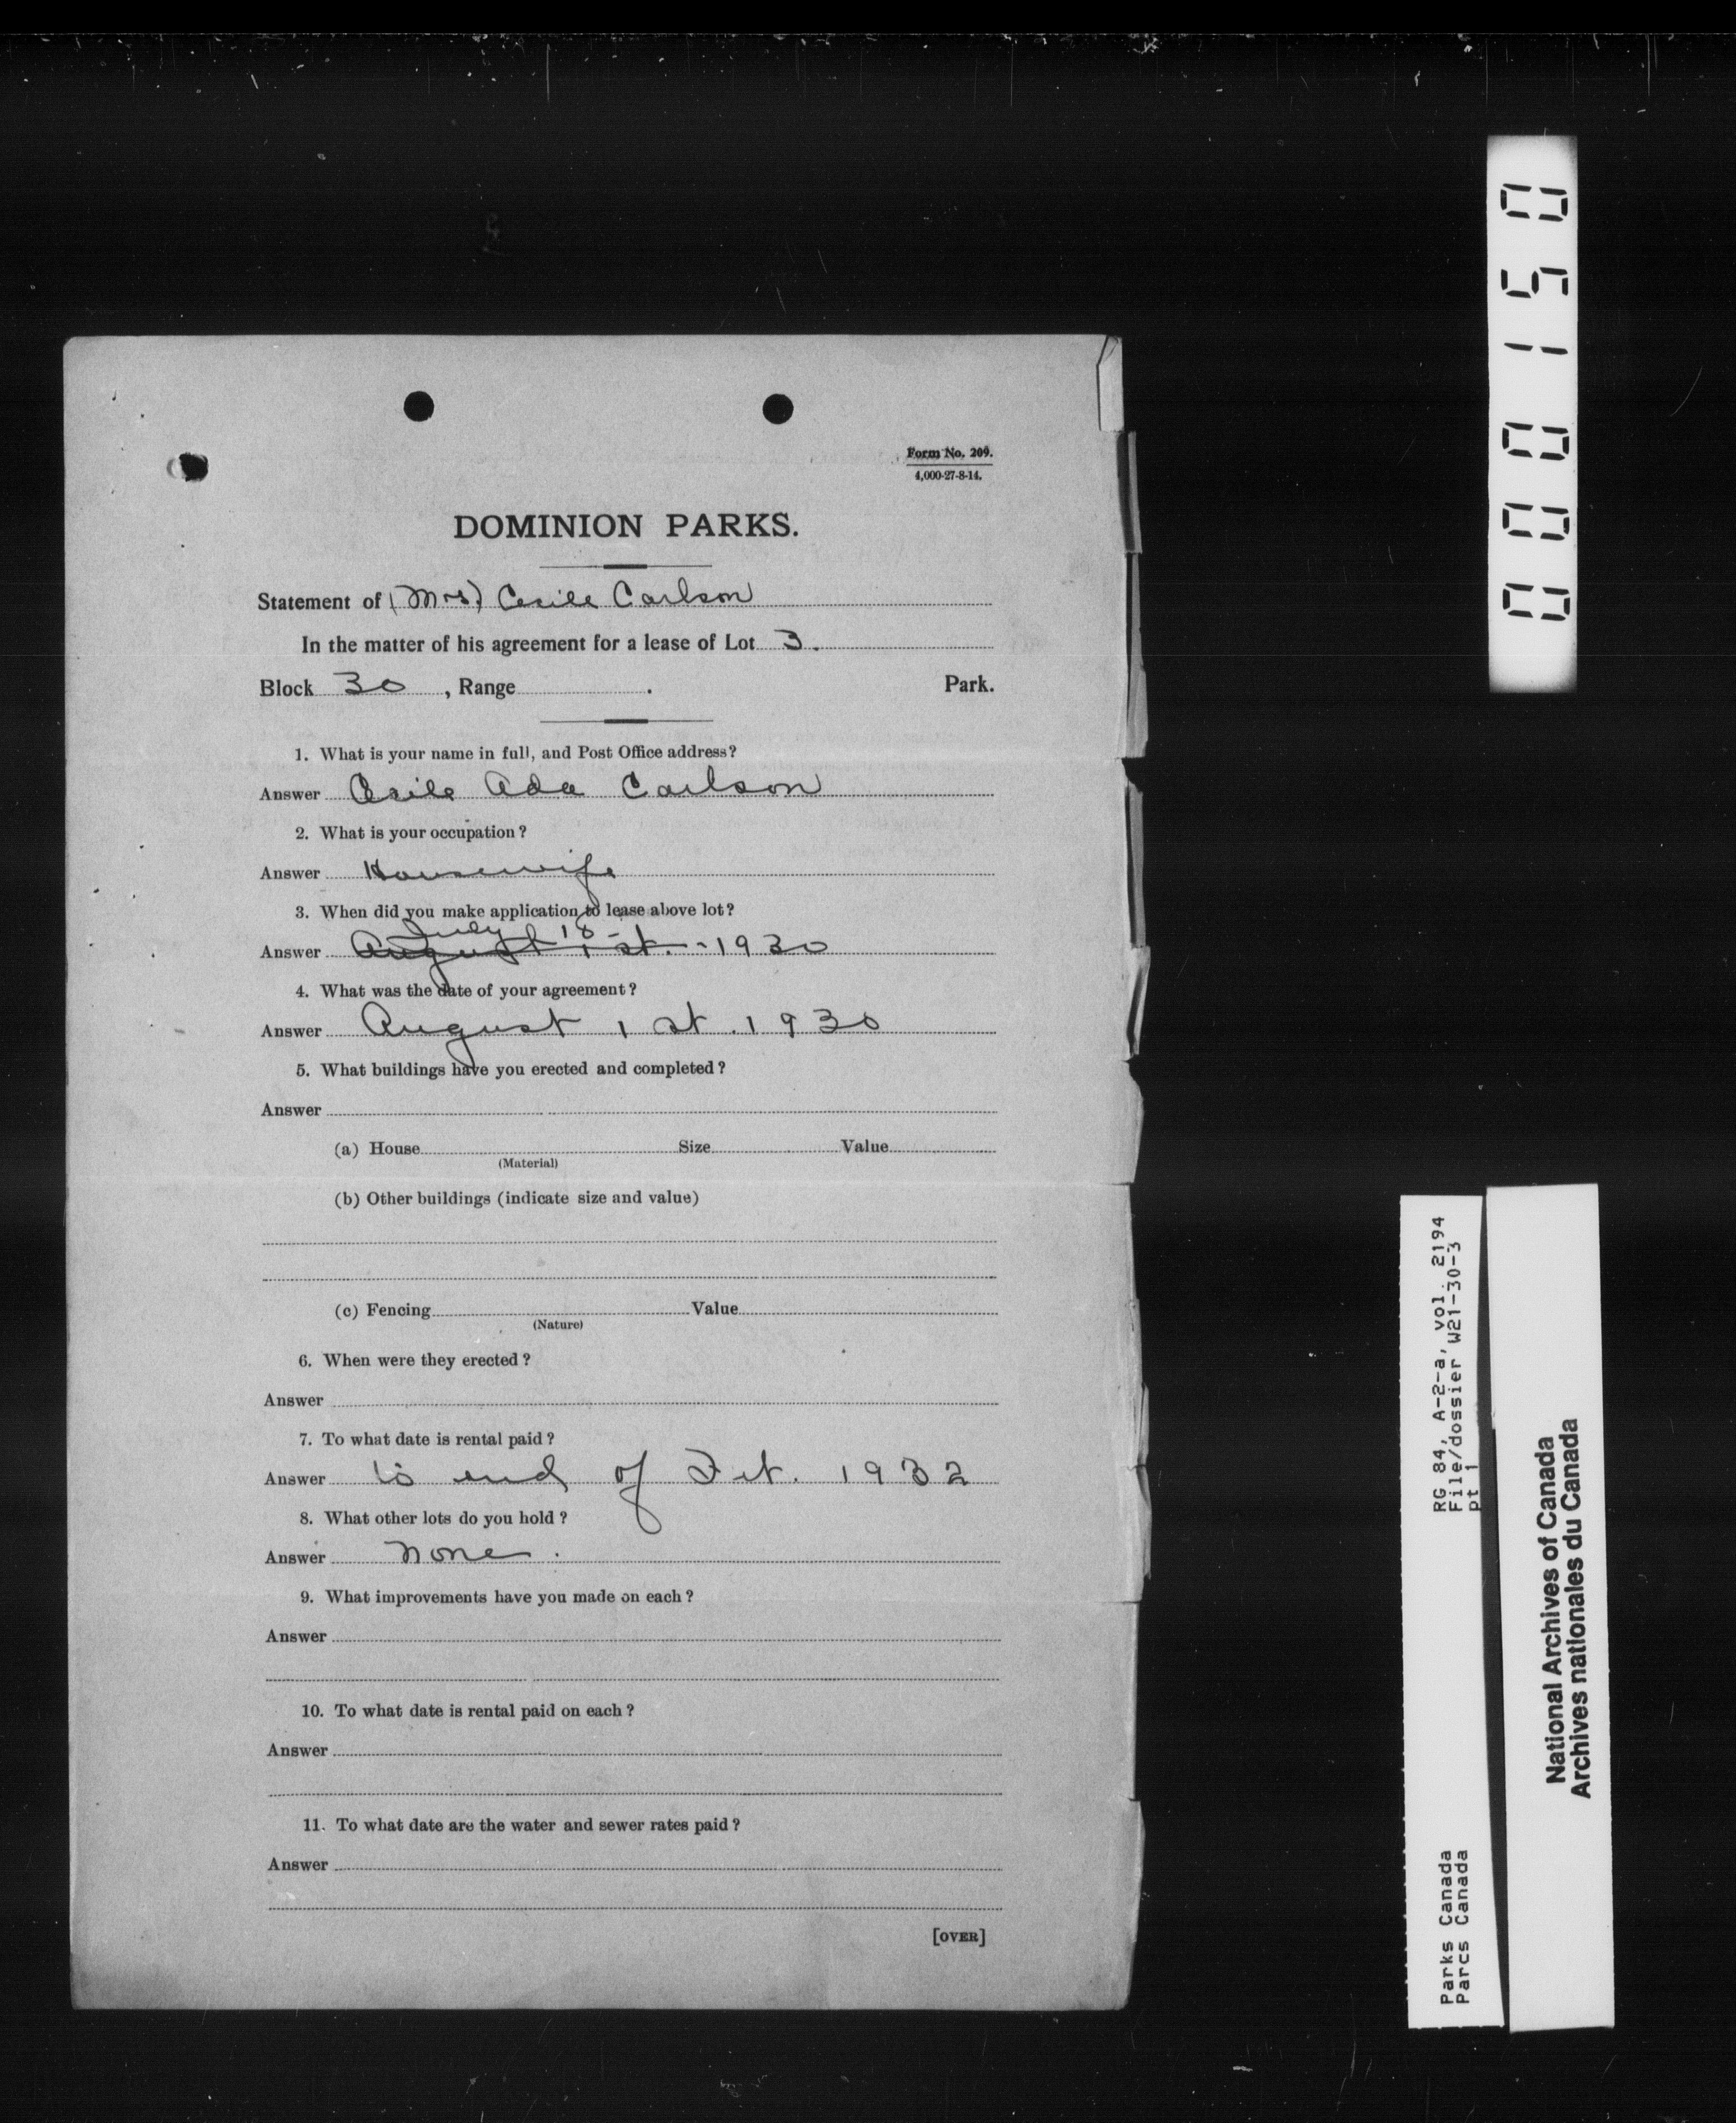 Form No. 209.
4,000-27-8-14.
DOMINION PARKS.
Statement of (Mrs) Cecile Carlson
In the matter of his agreement for a lease of Lot 3.
Block 30, Range . Park.
1. What is your name in full, and Post Office address?
Answer Cecile Ada Carlson
2. What is your occupation?
Answer Housewife
3. When did you make application to lease above lot?
July 18
Answer August 1 st. - 1930
4. What was the date of your agreement?
Answer August 1 st. 1930
5. What buildings have you erected and completed?
Answer
(a) House Size Value
(Material)
(b) Other buildings (indicate size and value)
(c) Fencing Value
(Nature)
6. When were they erected?
Answer
7. To what date is rental paid?
Answer to end of 1932
8. What other lots do you hold?
Answer none.
9. What improvements have you made on each?
Answer
10. To what date is rental paid on each?
Answer
11. To what date are the water and sewer rates paid?
Answer
[OVER]
000150
RG 84, A-2-a, vol. 2194
File/dossier W21-30-3
pt 1
Parks Canada
Parcs Canada
National Archives of Canada
Archives nationales du Canada